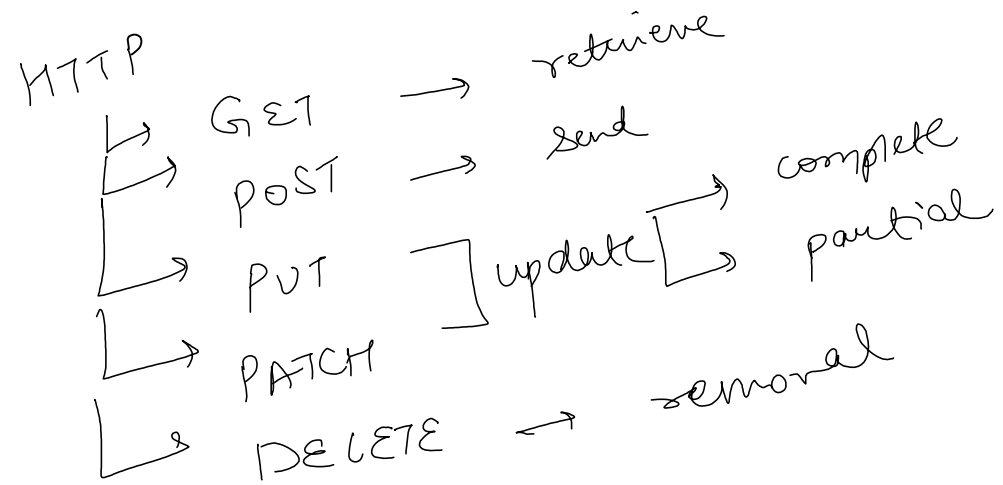 HTTP
GET → retrieve
POST → send
PUT
update → complete
→ partial
PATCH
DELETE → removal